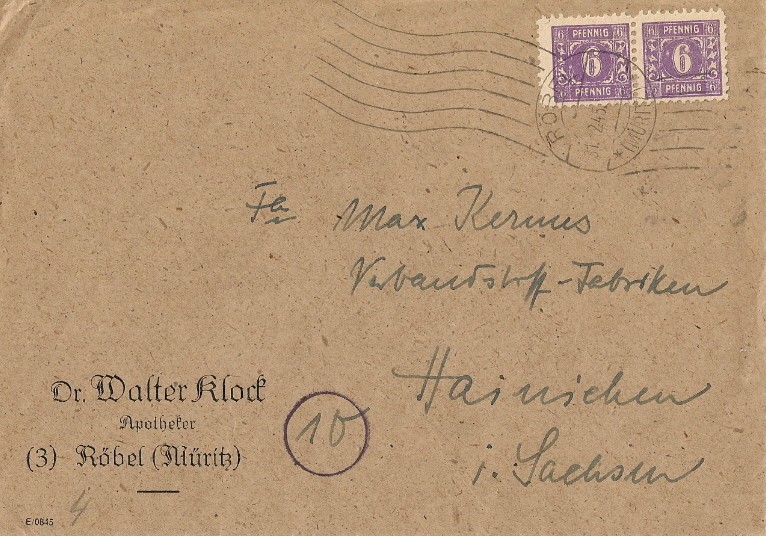 6 PFENNIG 6
6
PFENNIG
6 PFENNIG 6
6
PFENNIG
RÖBEL
(MÜRITZ)
Fa Max Kermes
Verbandstoff-Fabriken
Hainichen
i. Sachsen
10
Dr. Walter Klock
Apotheker
(3) Röbel (Müritz)
4
E/0845